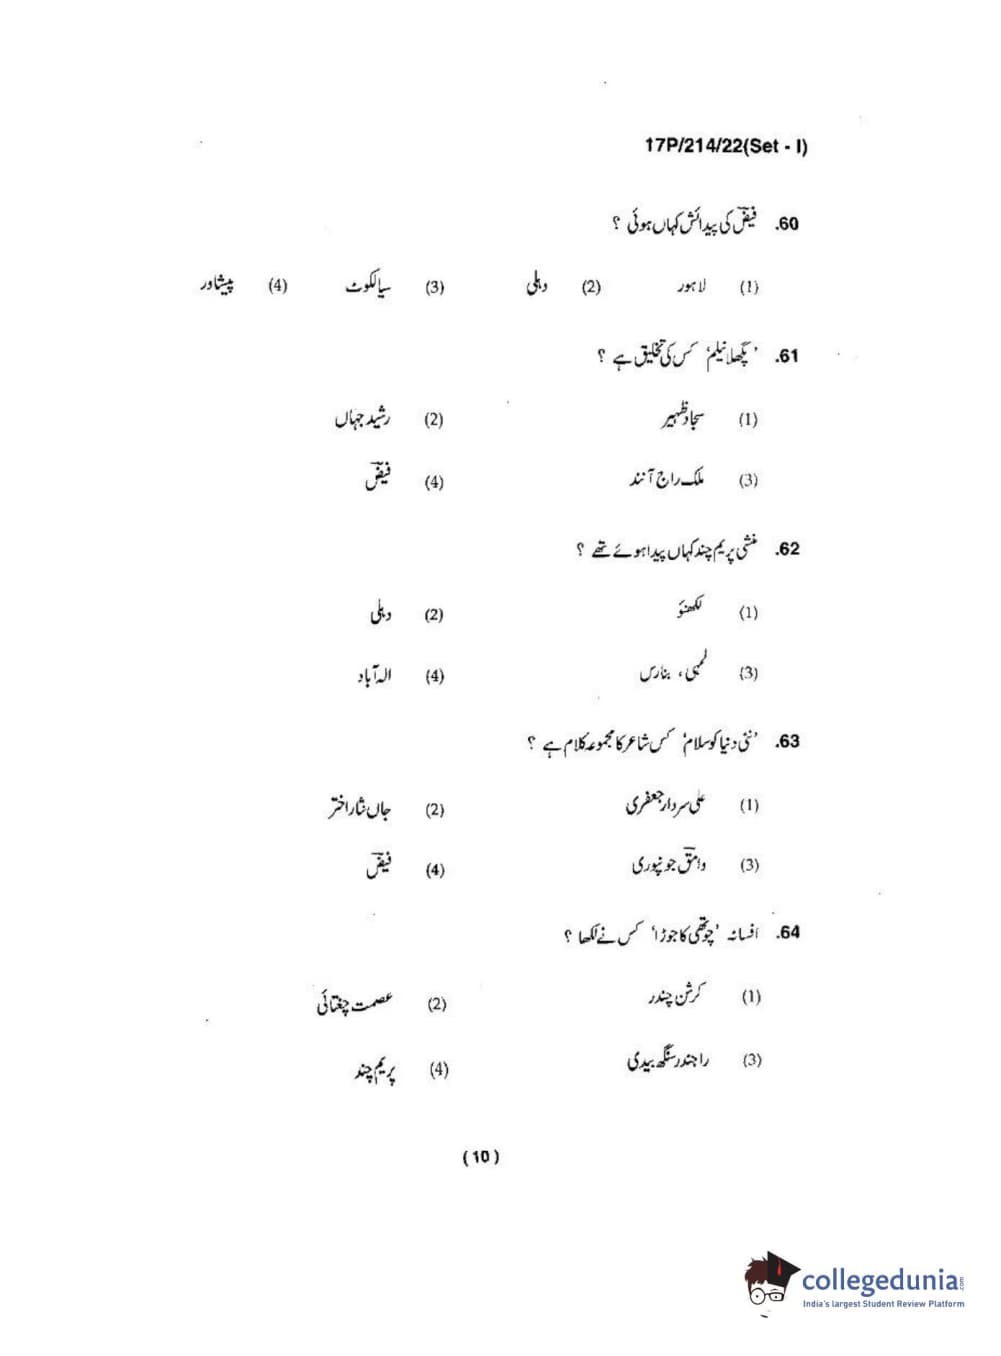 17P/214/22(Set - I)
60. فیضؔ کی پیدائش کہاں ہوئی ؟
(1) لاہور (2) دہلی (3) سیالکوٹ (4) پیشاور
61. ’پگھلا نیلم‘ کس کی تخلیق ہے ؟
(1) سجاد ظہیر (2) رشید جہاں
(3) ملک راج آنند (4) فیضؔ
62. منشی پریم چند کہاں پیدا ہوئے تھے ؟
(1) لکھنؤ (2) دہلی
(3) لمہی، بنارس (4) الہ آباد
63. ’نئی دنیا کو سلام‘ کس شاعر کا مجموعہ کلام ہے ؟
(1) علی سردار جعفری (2) جاں نثار اختر
(3) وامقؔ جونپوری (4) فیضؔ
64. افسانہ ’چوتھی کا جوڑا‘ کس نے لکھا ؟
(1) کرشن چندر (2) عصمت چغتائی
(3) راجندر سنگھ بیدی (4) پریم چند
(10)
collegedunia.com
India's largest Student Review Platform